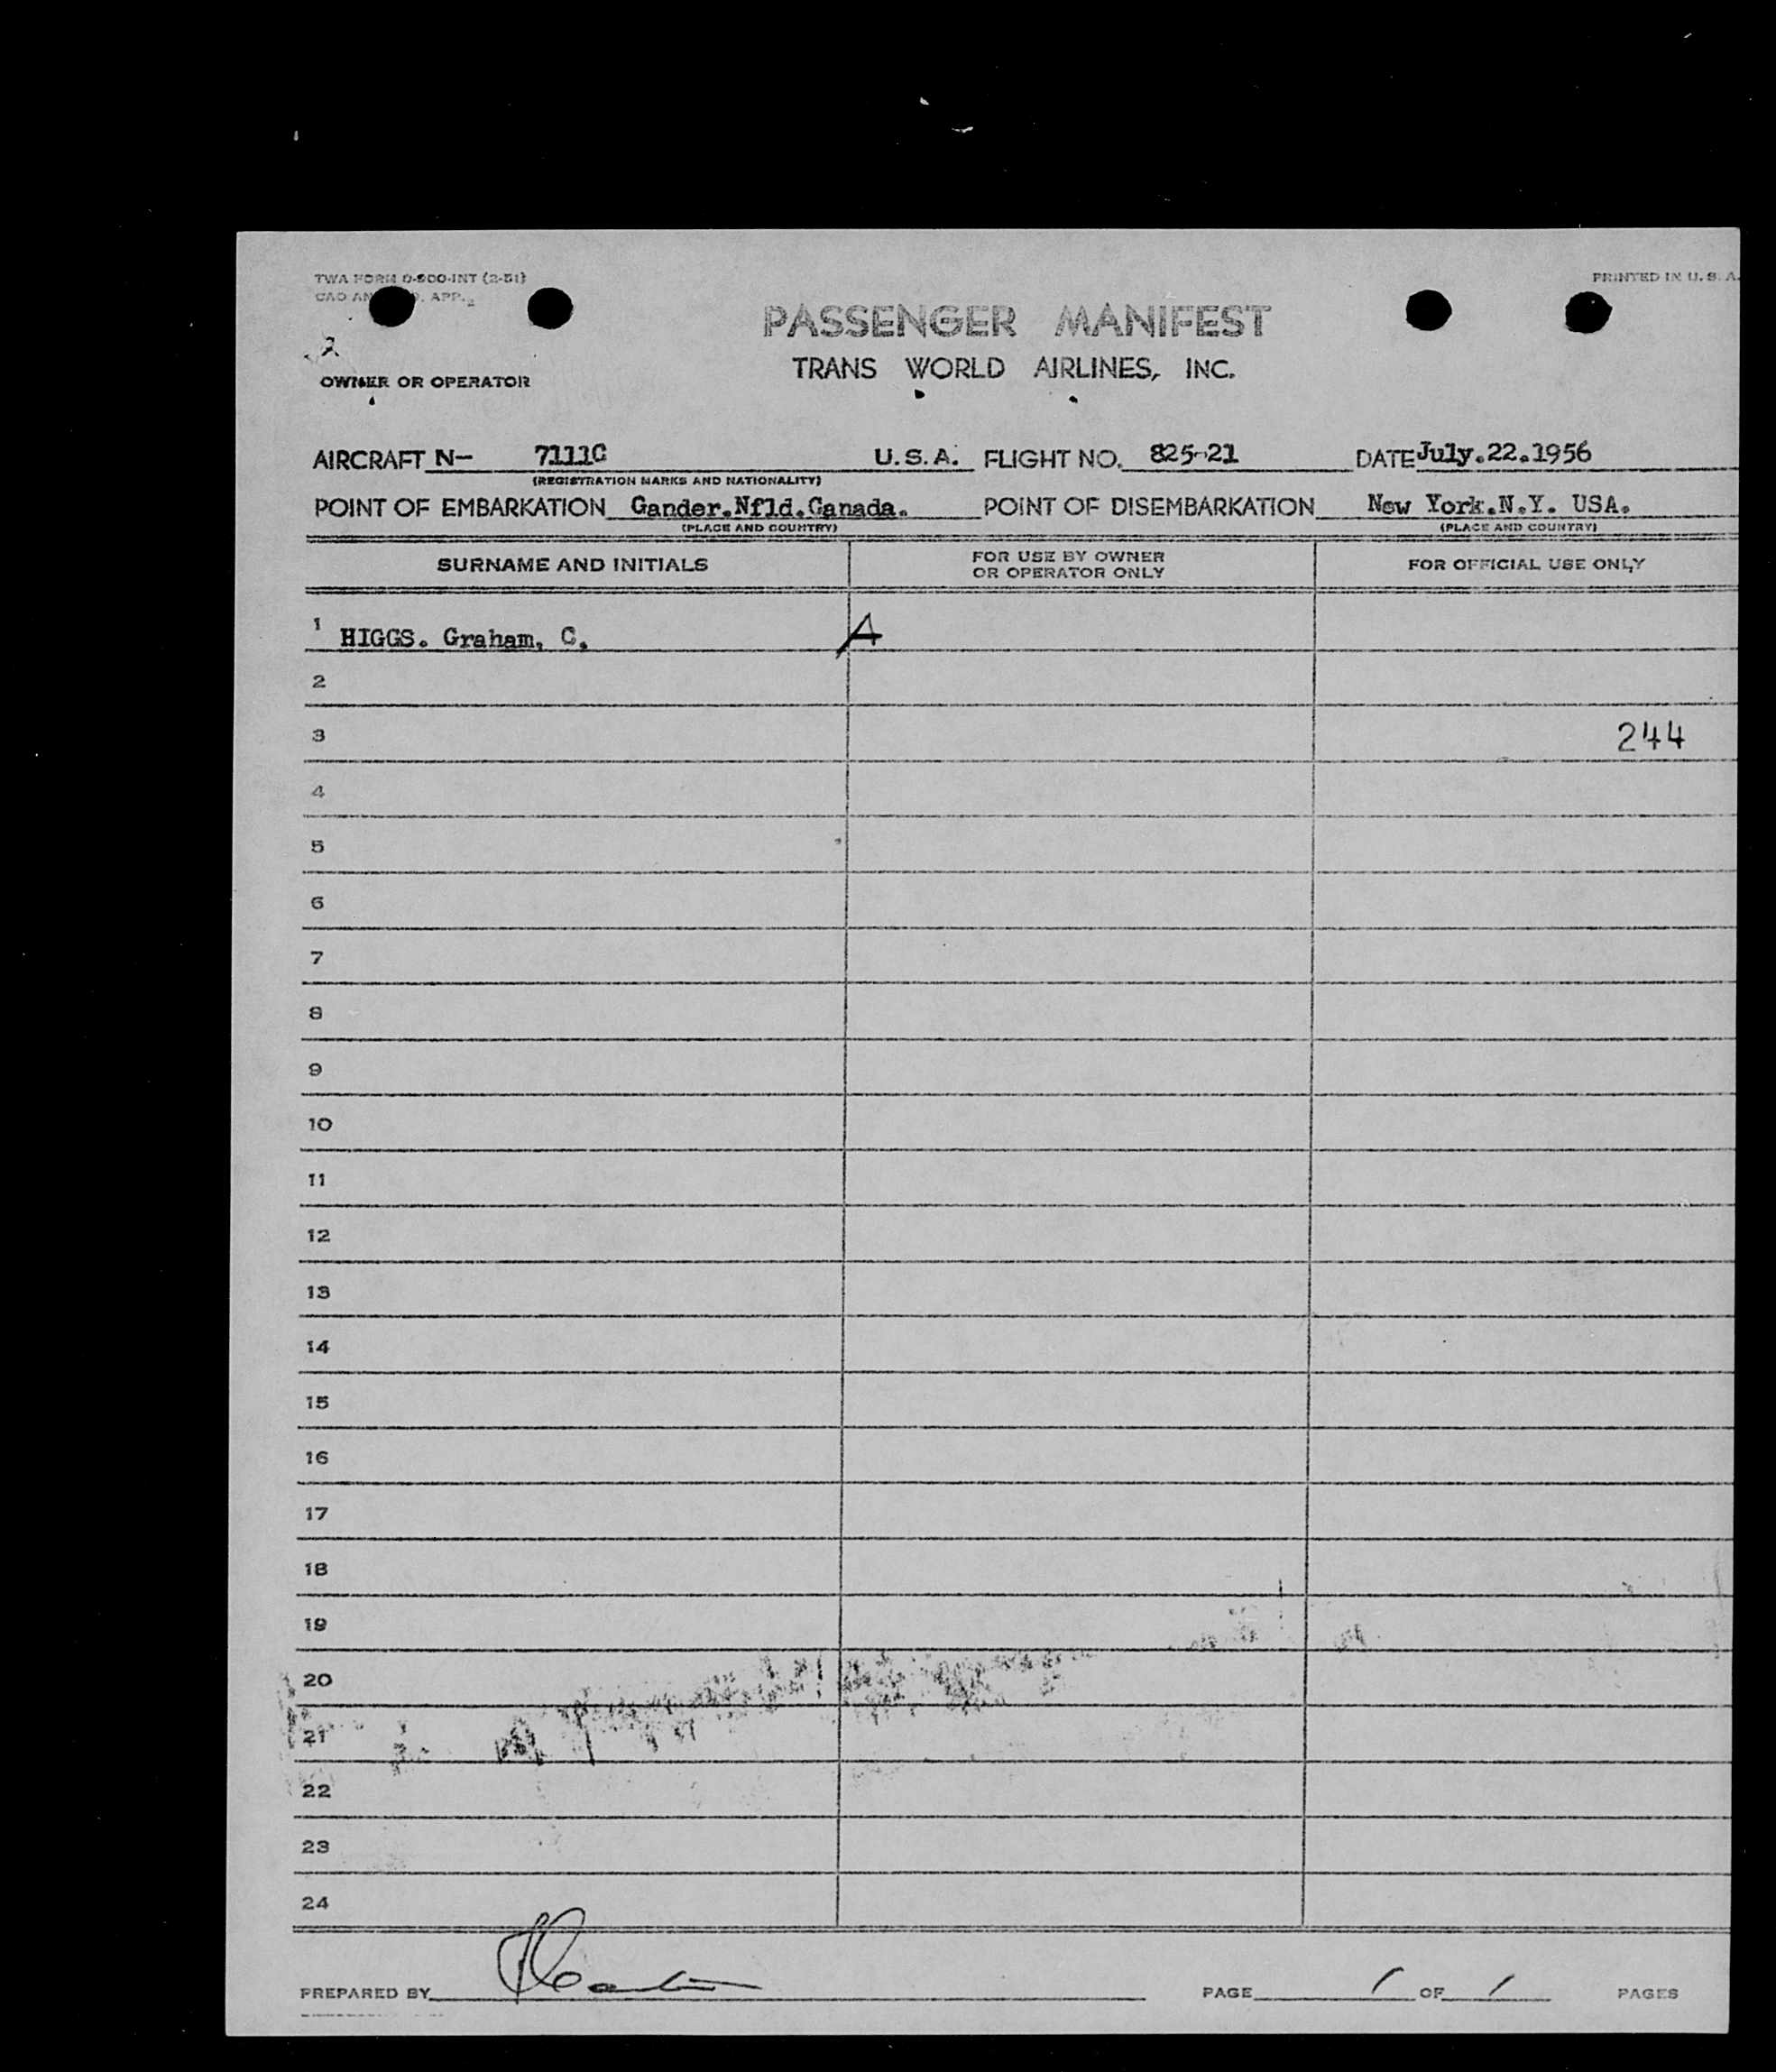 TWA FORM 0-900-INT (2-51)
PRINTED IN U. S. A.
CAO AN 9. APP. 2
PASSENGER MANIFEST
2
TRANS WORLD AIRLINES, INC.
OWNER OR OPERATOR
AIRCRAFT N- 7111C U.S.A. FLIGHT NO. 825-21 DATE July.22.1956
(REGISTRATION MARKS AND NATIONALITY)
POINT OF EMBARKATION Gander.Nfld.Canada. POINT OF DISEMBARKATION New York.N.Y. USA.
(PLACE AND COUNTRY) (PLACE AND COUNTRY)
SURNAME AND INITIALS FOR USE BY OWNER OR OPERATOR ONLY FOR OFFICIAL USE ONLY
1 HIGGS. Graham, C. A
2
3 244
4
5
6
7
8
9
10
11
12
13
14
15
16
17
18
19
20
21
22
23
24
PREPARED BY PAGE 1 OF 1 PAGES